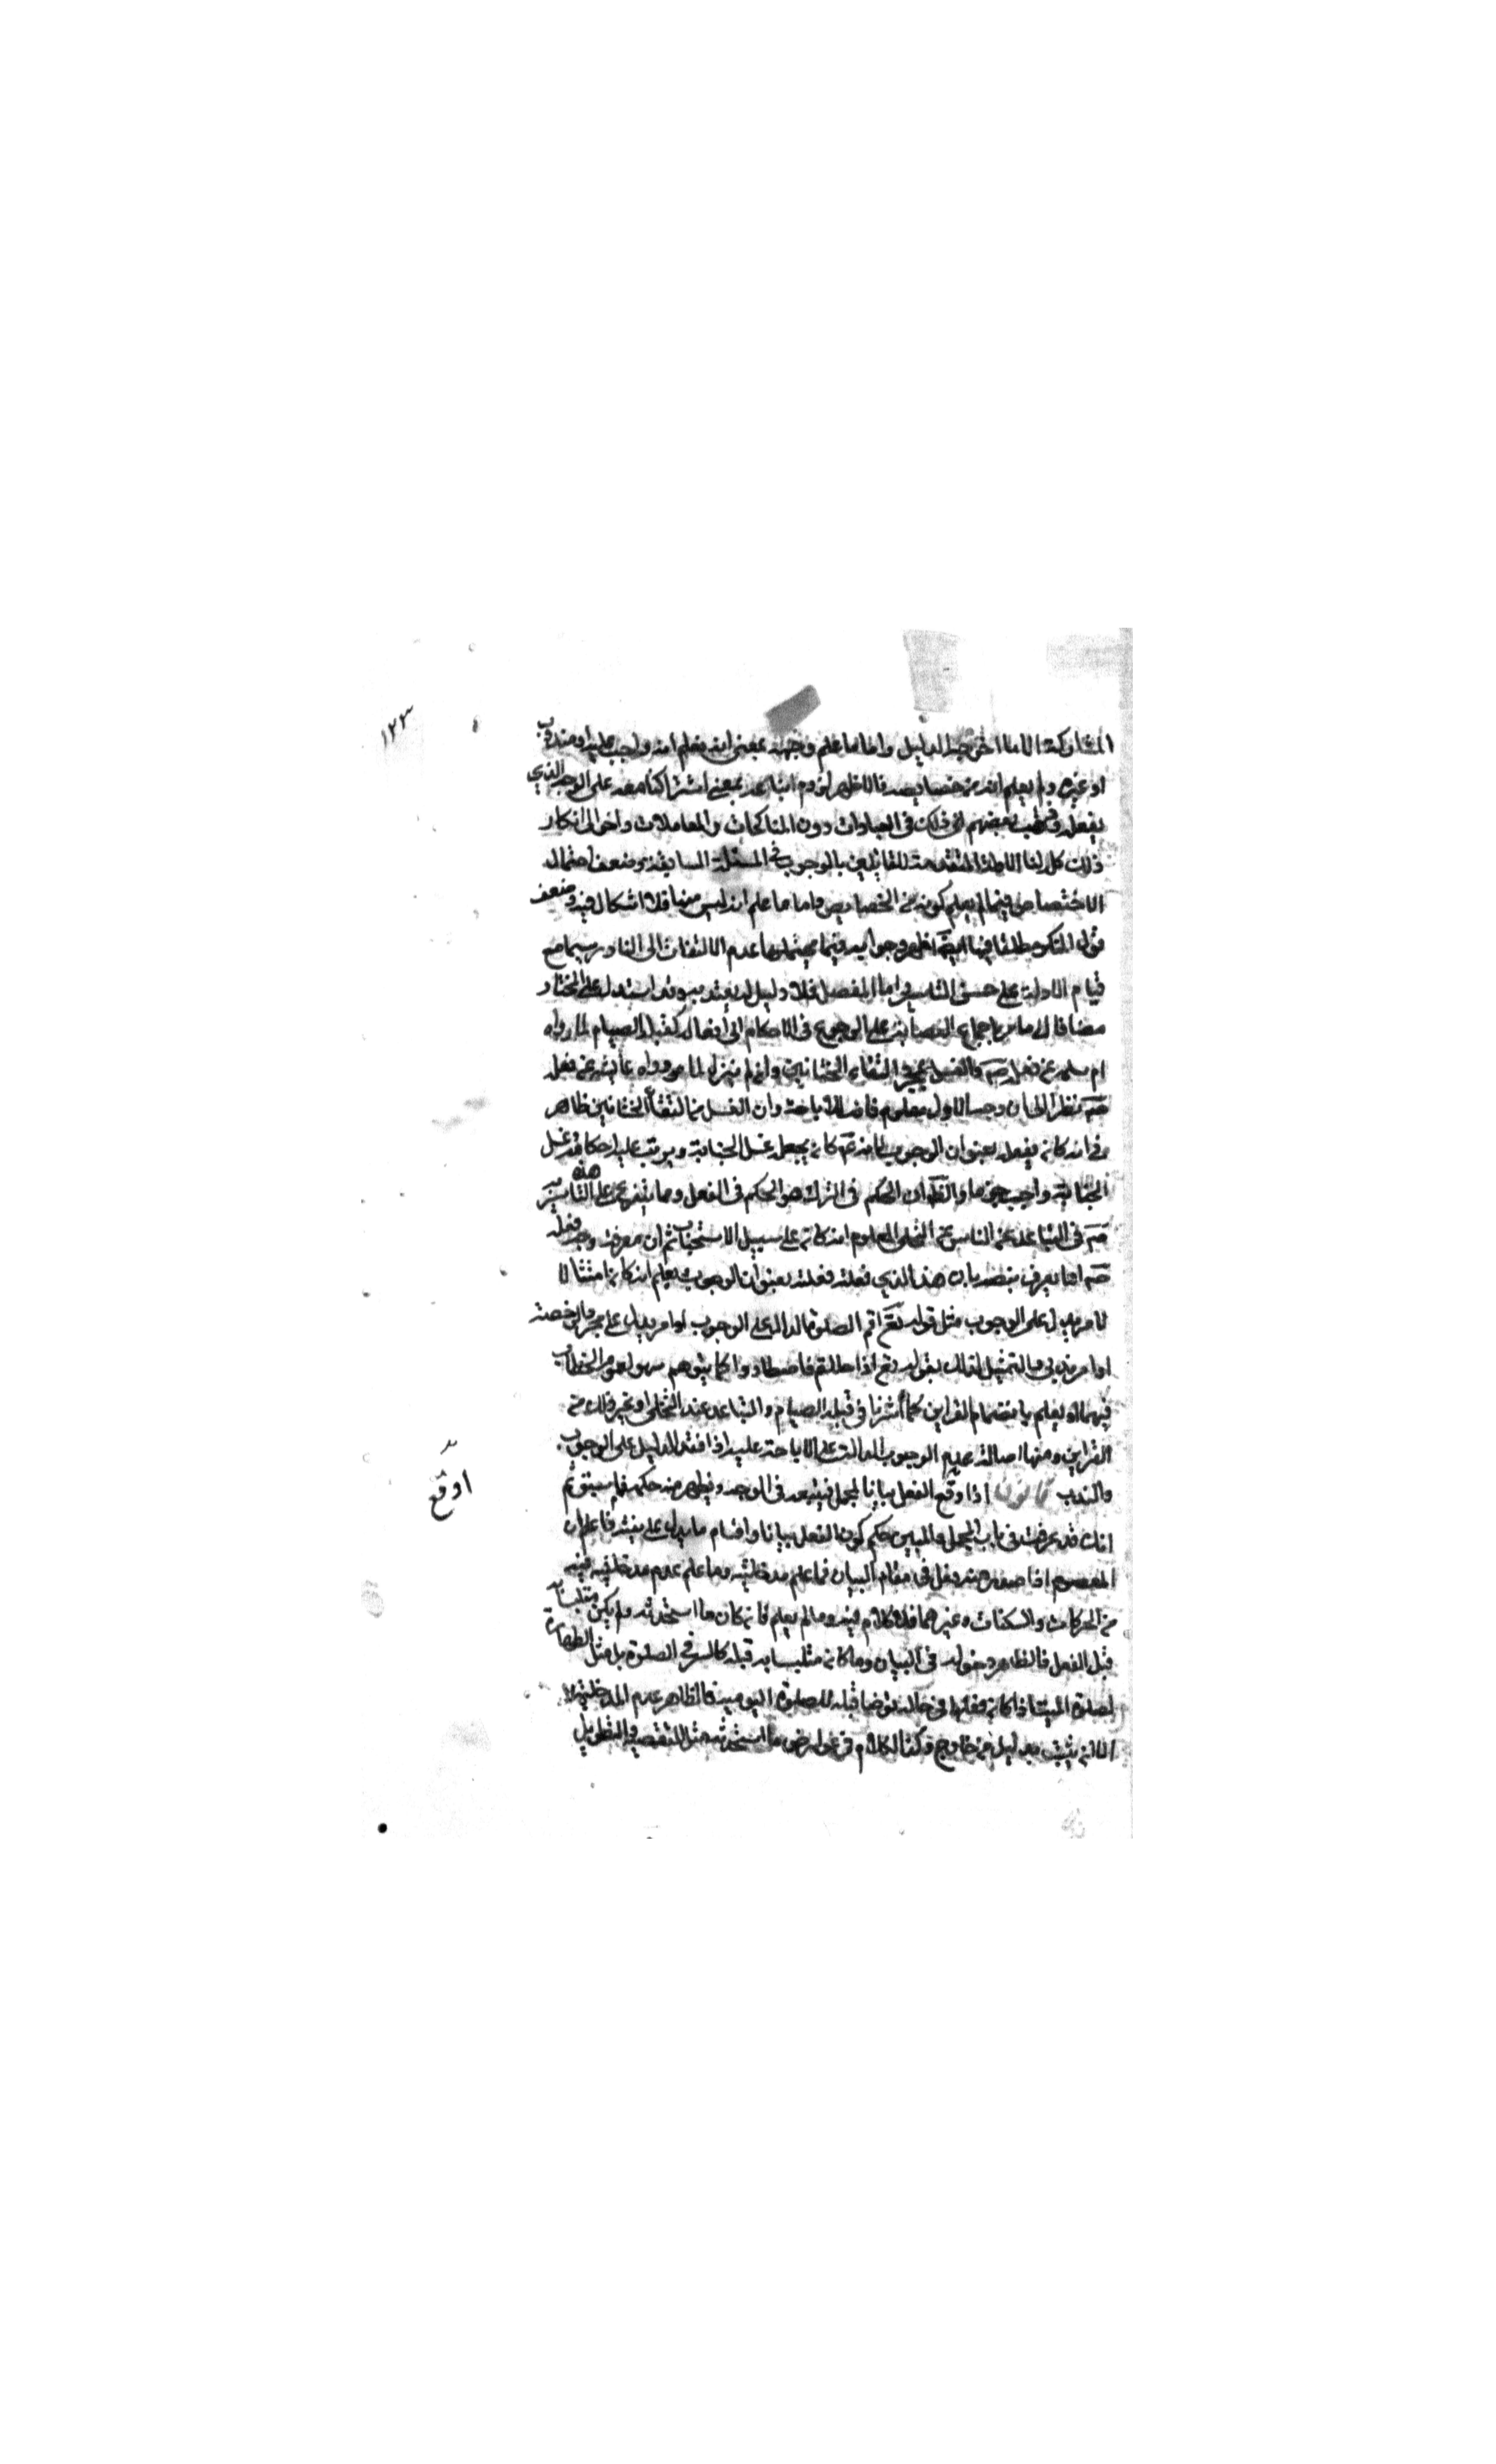 ١٢٣
المشاركة الا ما اخرجه الدليل واما ما علم وجهه بمعنى انه نعلم انه واجب عليه او مندوب
او غيره ولم يعلم انه من خصايصه فالاظهر لزوم اتباعه بمعنى اشتراكنا معه على الوجه الذي
يفعله وذهب بعضهم الى ذلك في العبادات دون المناكحات والمعاملات واخر الى انكار
ذلك كله لنا الادلة المتقدمة للقائلين بالوجوب في المسئلة السابقة وضعف احتمال
الاختصاص فيما لم يعلم كونه من الخصايص واما ما علم انه ليس منها فلا اشكال فيه وضعف
قول المنكر مطلقا فيها ايضا اظهر وجوابه فيما يحتملها عدم الالتفات الى النادر سيما مع
قيام الادلة على حسن التاسي واما المفصل فلا دليل له يعتد به وقد استدل على المختار
مضافا الى ما مر باجماع الصحابة على الرجوع في الاحكام الى أفعاله كقبلة الصيام لما رواه
ام سلمة عن فعله صه والغسل بمجرد التقاء الختانين وان لم ينزل لما روواه عايشه عن فعله
صه نظرا الى ان وجه الاول معلوم فاصالة الاباحة وان الغسل من التقاء الختانين ظاهر
في انه كان يفعله بعنوان الوجوب لانه ع كان يجعله غسل الجنابة ويرتب عليه احكامه وغسل
الجنابة واجب جزما والظ ان الحكم في الترك هو الحكم في الفعل ومما يتفرع على هذه التاسي به
صه في التباعد عن الناس عند التخلي المعلوم انه كان على سبيل الاستحباب ثم ان معرفة وجه فعله
صه اما يعرف بنصه بان هذا الذي فعلته فعلته بعنوان الوجوب او يعلم انه كان امتثالا
لامر يدل على الوجوب مثل قوله تع اقم الصلوة الدالة على الوجوب او امر يدل على مجرد الرخصة
او امر ندبي والتمثيل لذلك بقوله تع اذا حللتم فاصطادوا كما يتوهم سهو لعموم الخطاب
فيهما او يعلم بانضمام القراين كما أشرنا في قبلة الصيام والتباعد عند التخلي او غير ذلك من
القراين ومنها اصالة عدم الوجوب الدالة على الاباحة عليه اذا فقد الدليل على الوجوب
والندب قانون اذا وقع الفعل بيانا لمجمل فيتبعه في الوجه ويظهر منه حكمه فما سبق ثم
اوقع
انك قد عرفت في باب المجمل والمبين حكم كون الفعل بيانا واقسام ما يدل عليه فاعلم ان
المعصوم اذا صدر عنه فعل في مقام البيان فما علم مدخليته وما علم عدم مدخليته فيه
من الحركات والسكنات وغيرهما فلا كلام فيه وما لم يعلم فان كان مما استحدثه ولم يكن متلبسا به
قبل الفعل فالظاهر دخوله في البيان وما كان متلبسا به قبله كالستر في الصلوة بل مثل الطهارة
لصلوة الميت اذا كان فعلها في حالة توضا قبله للصلوة اليومية فالظاهر عدم المدخلية
الا ان يثبت بدليل من خارج وكذا الكلام في عوارض ما استحدثه مثل التقصير والتطويل